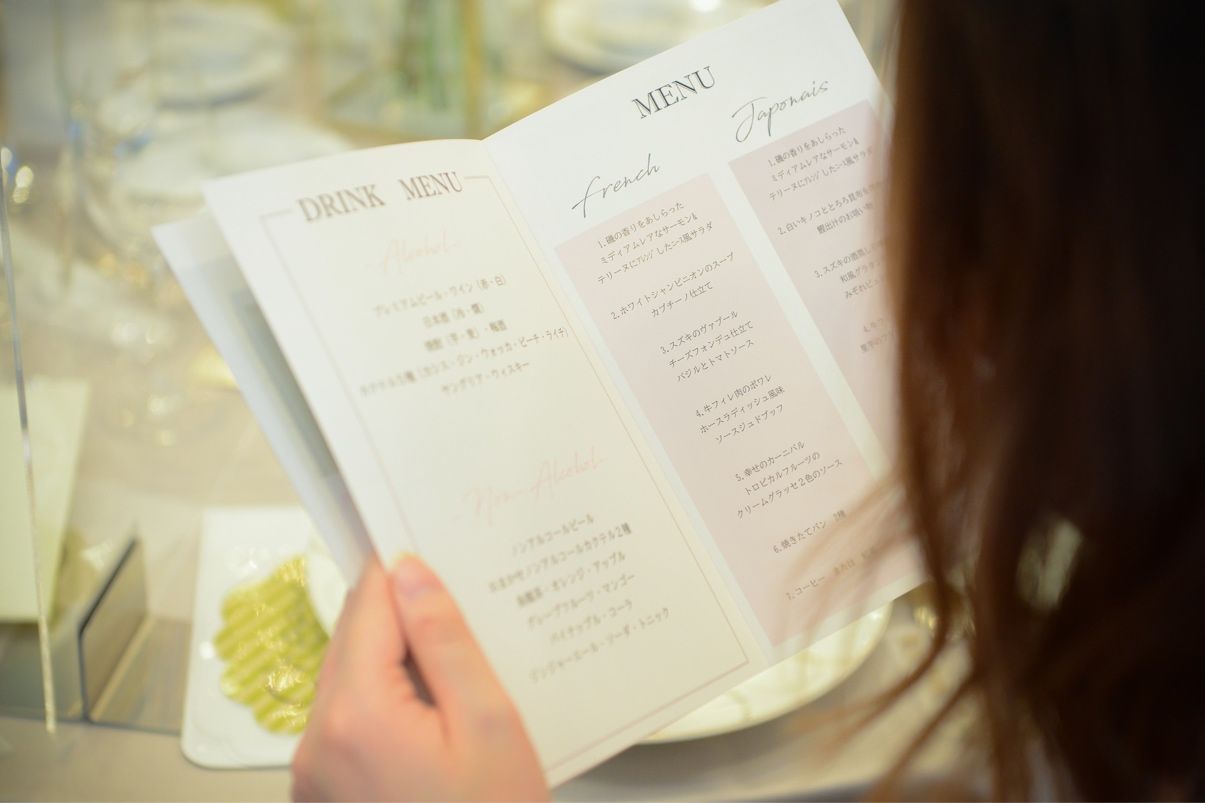 DRINK MENU
Alcohol
プレミアムビール・ワイン（赤・白）
日本酒（冷・燗）
焼酎（芋・麦）・梅酒
カクテル5種（カシス・ジン・ウォッカ・ピーチ・ライチ）
サングリア・ウィスキー
Non-Alcohol
ノンアルコールビール
おまかせノンアルコールカクテル2種
烏龍茶・オレンジ・アップル
グレープフルーツ・マンゴー
パイナップル・コーラ
ジンジャーエール・ソーダ・トニック
MENU
french
1.磯の香りをあしらった
ミディアムレアなサーモン&
テリーヌにｱﾚﾝｼﾞしたﾆｰｽ風サラダ
2.ホワイトシャンピニオンのスープ
カプチーノ仕立て
3.スズキのヴァプール
チーズフォンデュ仕立て
バジルとトマトソース
4.牛フィレ肉のポワレ
ホースラディッシュ風味
ソースジュドブッフ
5.幸せのカーニバル
トロピカルフルーツの
クリームグラッセ2色のソース
6.焼きたてパン 2種
7.コーヒー
Japonais
1.磯の香りをあしらった
ミディアムレアなサーモン&
テリーヌにｱﾚﾝｼﾞしたﾆｰｽ風サ
2.白いキノコととろろ昆布を
鰹出汁のお吸い物
3.スズキの酒蒸し
和風グラタ
みぞれピュ
4.牛フ